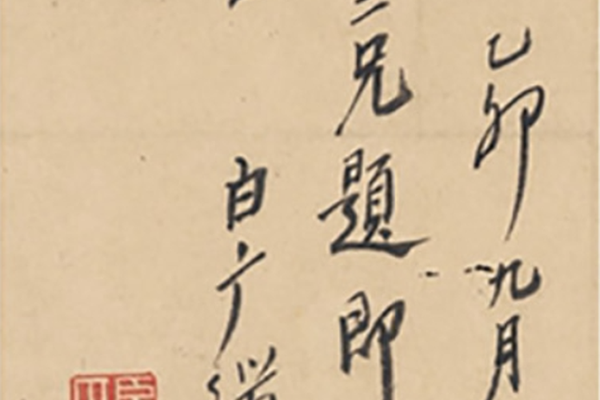 乙卯九月
兄題即
白广